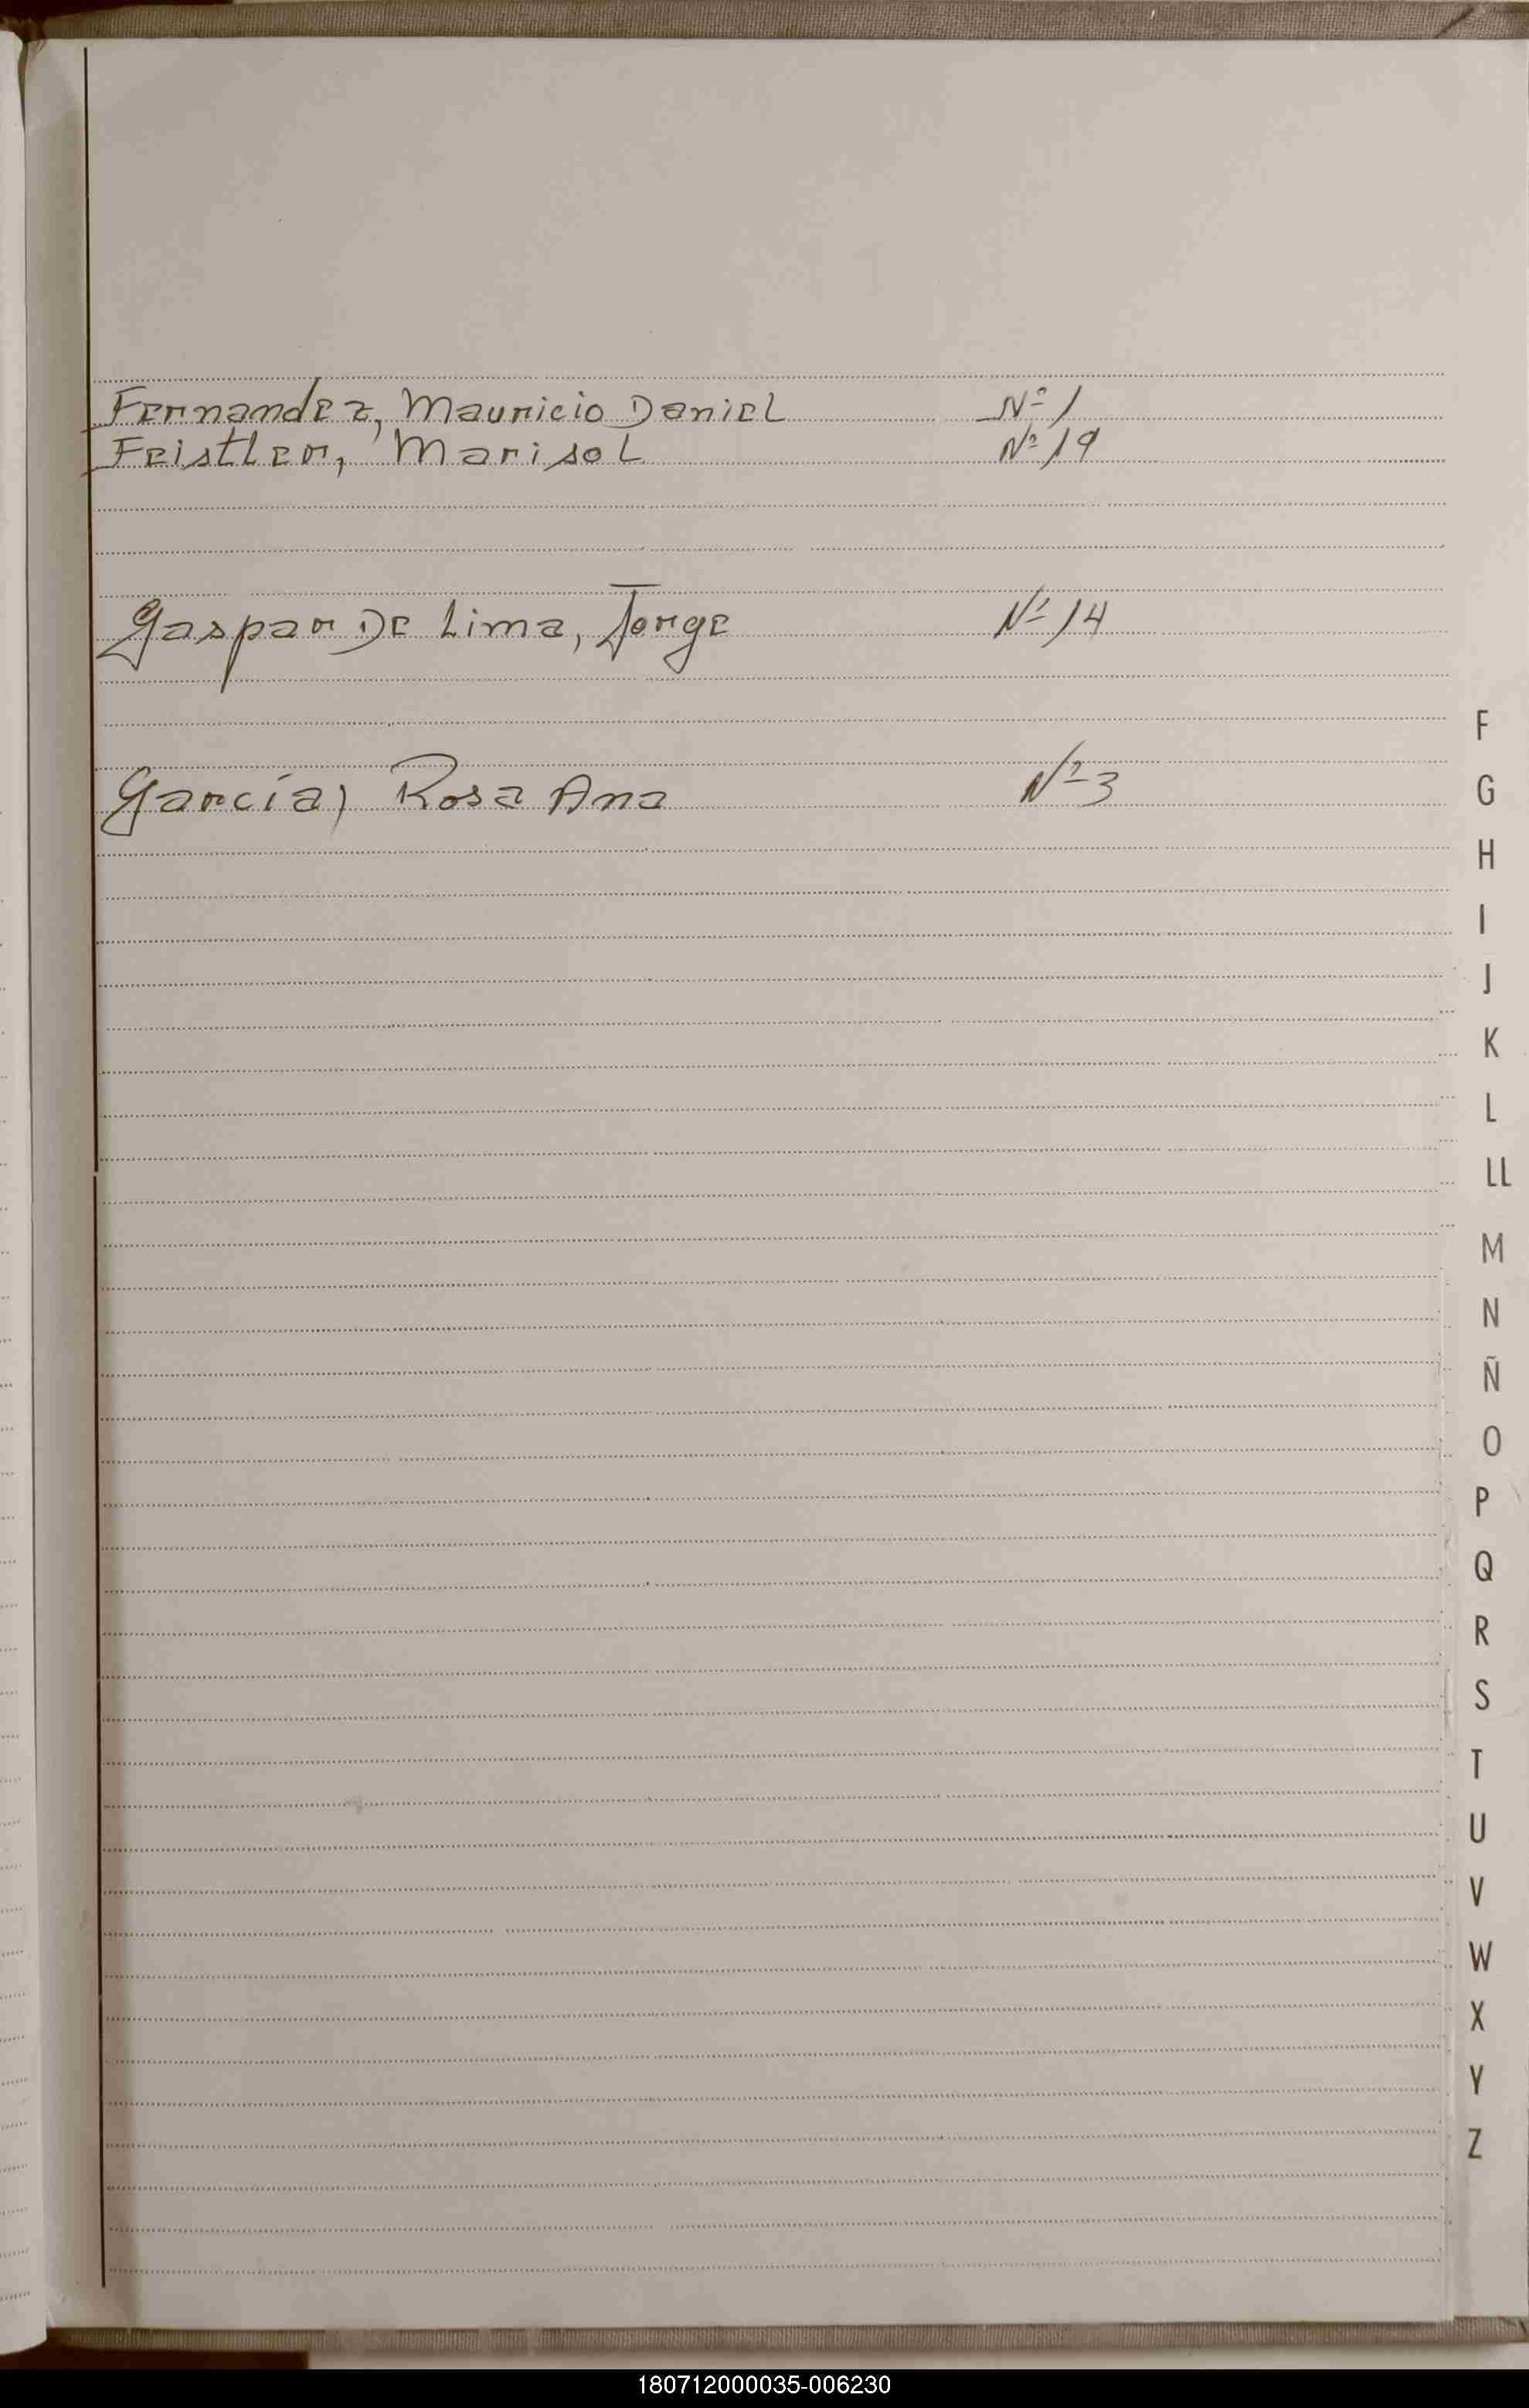 Fernandez, Mauricio Daniel Nº 1
Feistler, Marisol Nº 19
Gaspar De Lima, Jorge Nº 14
García, Rosa Ana Nº 3
F
G
H
I
J
K
L
LL
M
N
Ñ
O
P
Q
R
S
T
U
V
W
X
Y
Z
180712000035-006230